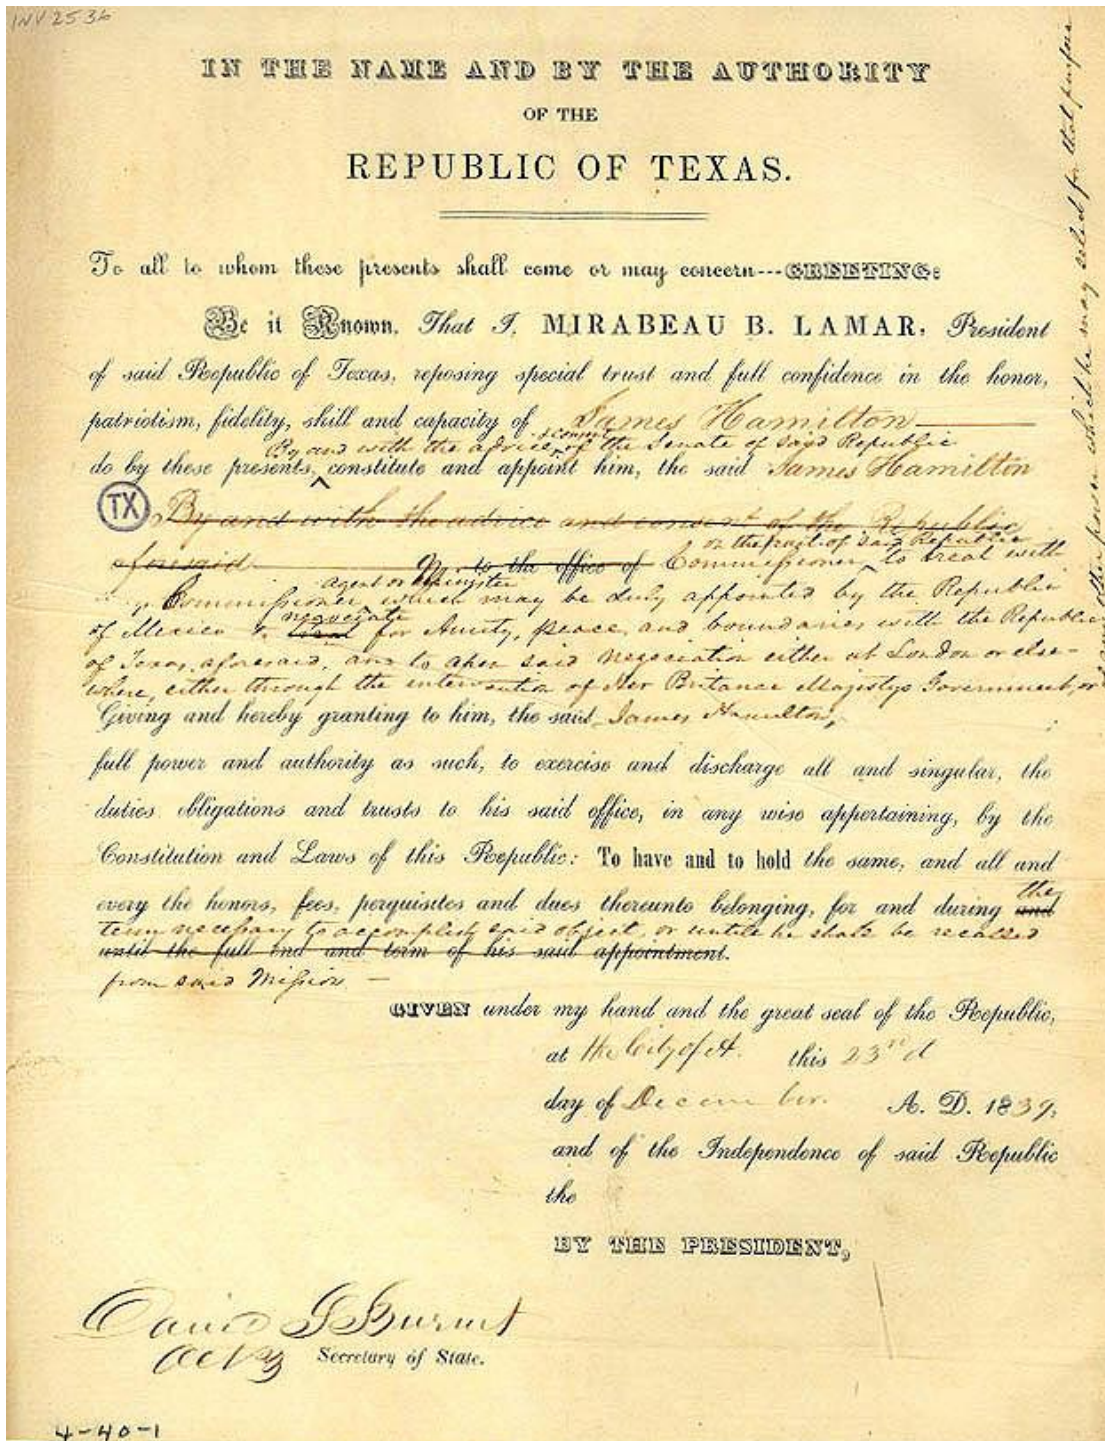 INV 2536
IN THE NAME AND BY THE AUTHORITY
OF THE
REPUBLIC OF TEXAS.
To all to whom these presents shall come or may concern---GREETING:
Be it Known, That I, MIRABEAU B. LAMAR, President
of said Republic of Texas, reposing special trust and full confidence in the honor,
patriotism, fidelity, skill and capacity of James Hamilton
By and with the advice & consent of the Senate of said Republic
do by these presents, constitute and appoint him, the said James Hamilton
TX
By and with the advice and consent of the Republic
on the part of said Republic
aforesaid to the office of Commissioner to treat with
agent or Minister
Commissioner which may be duly appointed by the Republic
negociate
of Mexico & treat for Amity, peace, and boundaries with the Republic
of Texas, aforesaid, and to open said negociation either at London or else-
where, either through the intervention of Her Britanic Majestys Government, or
Giving and hereby granting to him, the said James Hamilton,
full power and authority as such, to exercise and discharge all and singular, the
duties obligations and trusts to his said office, in any wise appertaining, by the
Constitution and Laws of this Republic: To have and to hold the same, and all and
every the honors, fees, perquisites and dues thereunto belonging, for and during and
the
term necessary to accomplish said object, or untile he shall be recalled
until the full end and term of his said appointment.
from said Mission -
GIVEN under my hand and the great seal of the Republic,
at the City of A. this 23rd
day of December A. D. 1839,
and of the Independence of said Republic
the
BY THE PRESIDENT,
David G Burnet
Actg Secretary of State.
4-40-1
other power which he may select for that purpose